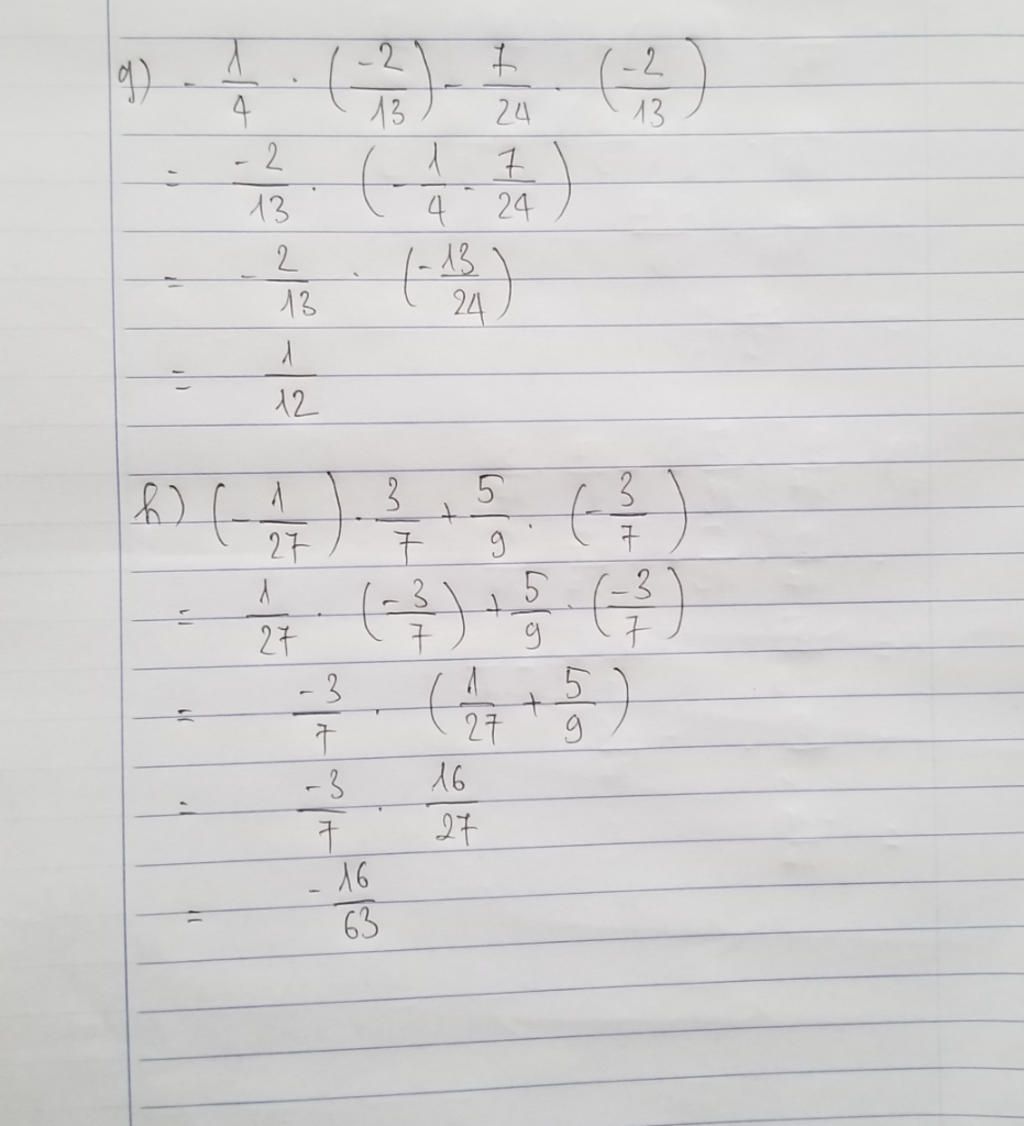 g) - 1/4 · (-2/13) - 7/24 · (-2/13)
= -2/13 · (- 1/4 - 7/24)
= - 2/13 · (- 13/24)
= 1/12
h) (- 1/27) · 3/7 + 5/9 · (- 3/7)
= 1/27 · (-3/7) + 5/9 · (-3/7)
= -3/7 · (1/27 + 5/9)
= -3/7 · 16/27
= - 16/63